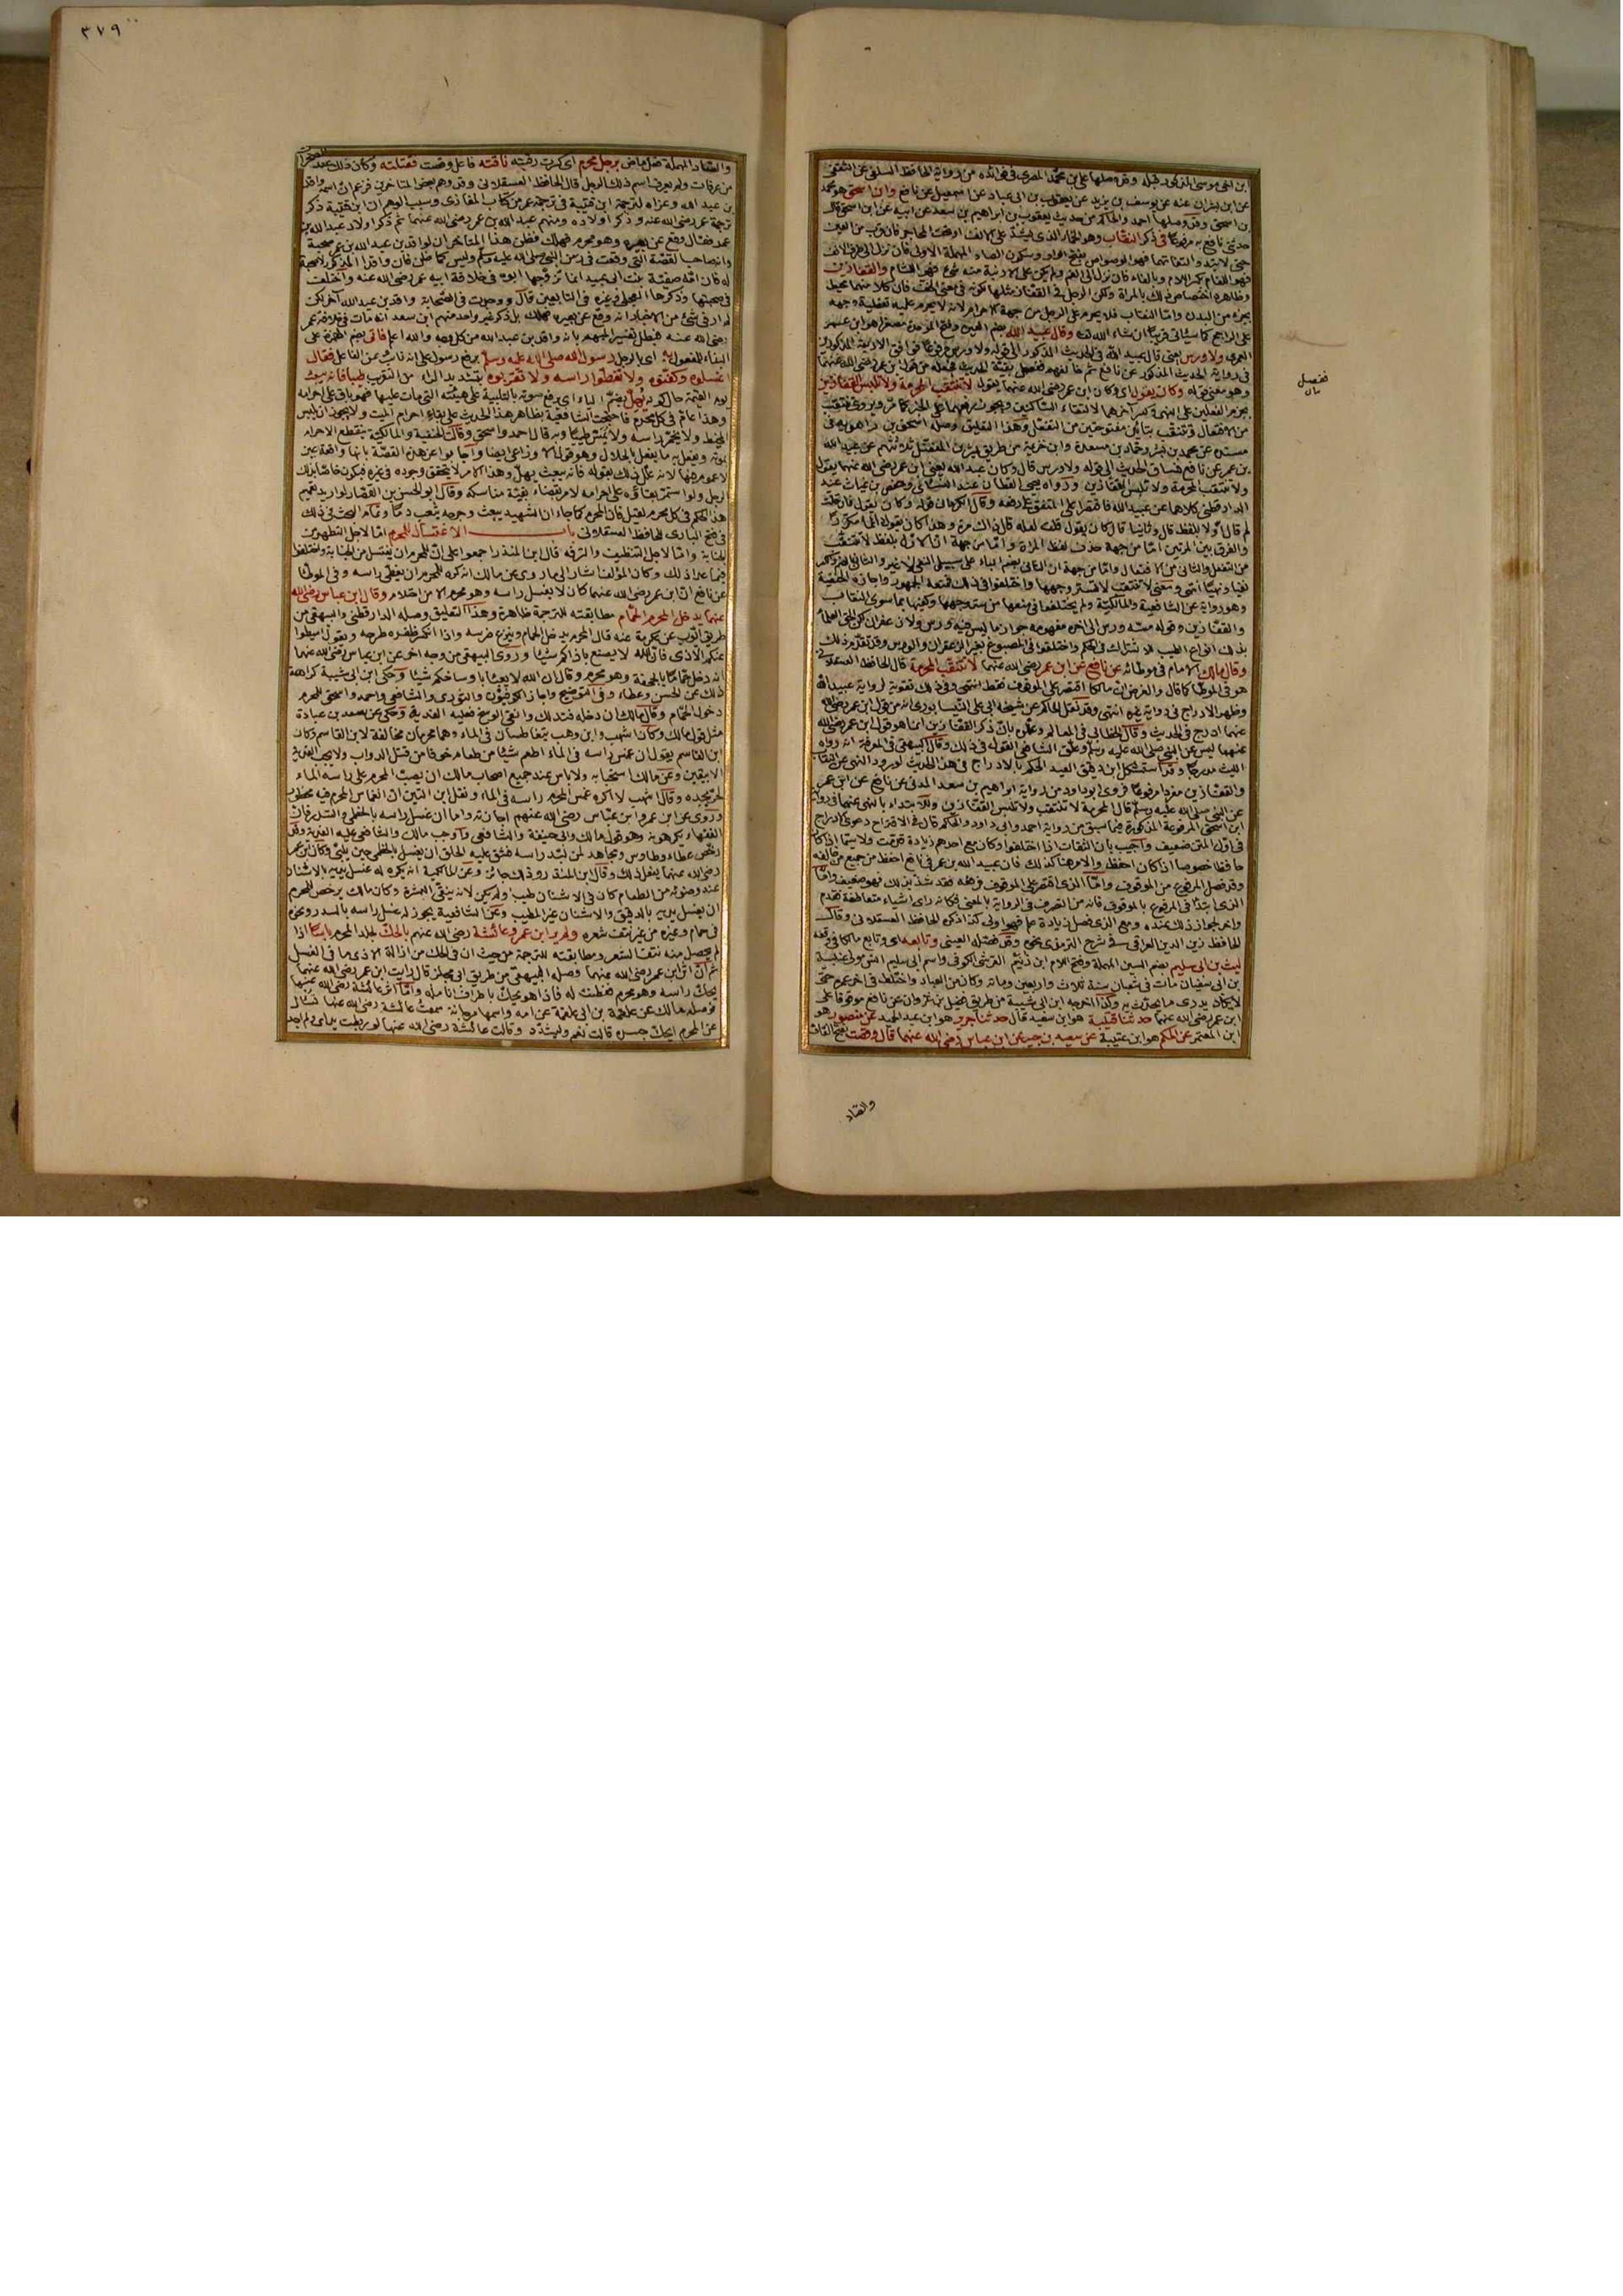 ابن ابى موسى المذكور قبله وقد وصلها على بن محمد المصرى فى فوائده من رواية الحافظ السلفى عن الثقفى
عن ابن بشران عنه عن يوسف بن يزيد عن يعقوب بن ابى عباد عن اسمعيل عن نافع وابن اسحق هو محمد
بن اسحق وقد وصلها احمد والحاكم من حديث يعقوب بن ابراهيم بن سعد عن ابيه عن ابن اسحق قال
حدثنى نافع به مرفوعا فى ذكر النقاب وهو الخمار الذى يشد على الانف او تحت المحاجر فان قرب من العين
حتى لا تبدو اجفانها فهو الوصواص بفتح الواو وسكون الصاد المهملة الاولى فان نزل الى طرف الانف
فهو اللفام بكسر اللام وبالفاء فان نزل الى الفم ولم يكن على الارنبة منه شئ فهو اللثام والقفازين
وظاهره اختصاص ذلك بالمراة ولكن الرجل فى القفاز مثلها لكونه فى معنى الخف فان كلا منهما محيط
بجزء من البدن واما النقاب فلا يحرم على الرجل من جهة الاحرام لانه لا يحرم عليه تغطية وجهه
على الراجح كما سيأتى قريبا ان شاء الله تعالى وقال عبيد الله بضم العين وفتح الموحدة مصغرا هو ابن عمر
العمرى ولا ورس يعنى قال عبيد الله فى الحديث المذكور الى قوله ولا ورس
فى رواية الحديث المذكور عن نافع ثم خالفهم ففصل بقية الحديث فجعله من قول ابن عمر رضى الله عنهما
وهو معنى قوله وكان يقول اى وكان ابن عمر رضى الله عنهما يقول لا تتنقب المحرمة ولا تلبس القفازين
بجزم الفعلين على النهى وكسر آخرهما لالتقاء الساكنين ويجوز رفعهما على الخبر
من التفعل وهذا التعليق وصله اسحق بن راهويه فى
مسنده عن محمد بن بشر وحماد بن مسعدة وابن خزيمة من طريق بشر بن المفضل ثلاثتهم عن عبيد الله
بن عمر عن نافع فساق الحديث الى قوله ولا ورس قال وكان عبد الله يعنى ابن عمر رضى الله عنهما يقول
ولا تنتقب المحرمة ولا تلبس القفازين ورواه يحيى القطان عند النسائى وحفص بن غياث عند
الدارقطنى كلاهما عن عبيد الله فاقتصرا على المتفق على رفعه وقال الكرمانى قوله وكان يقول فان قلت
لم قال اولا بلفظ قال وثانيا قال كان يقول قلت لعله قال ذلك مرة وهذا كان يقوله دائما مكررا
والفرق بين المرتين اما من جهة حذف لفظ المراة واما من جهة ان الاول بلفظ لا تتنقب
من التفعل والثانى من الافتعال واما من جهة ان الثانى بضم الباء على سبيل النفى لا غير والاول
نفيا ونهيا انتهى ومعنى لا تنتقب لا تستر وجهها واختلفوا فى ذلك فمنعه الجمهور واجازه الحنفية
وهو رواية عن الشافعية والمالكية ولم يختلفوا فى منعها من ستر وجهها وكفيها بما سوى النقاب
والقفازين وقوله مسه ورس الى اخره مفهومه جواز ما ليس فيه ورس ولا زعفران لكن الحق العلماء
بذلك انواع الطيب للاشتراك فى الحكم واختلفوا فى المصبوغ بغير الزعفران والورس وقد تقدم ذلك
وقال مالك الامام فى موطائه عن نافع عن ابن عمر رضى الله عنهما لا تتنقب المحرمة قال الحافظ العسقلانى
هو فى الموطا كما قال والغرض ان مالكا اقتصر على الموقوف فقط انتهى وفى ذلك تقوية لرواية عبيد الله
وظهر الادراج فى رواية غيره انتهى وقد نقل الحاكم عن شيخه ابى على النيسابورى انه من قول ابن عمر رضى الله
عنهما ادرج فى الحديث وقال الخطابى فى المعالم وعللوه بان ذكر القفازين انما هو قول ابن عمر رضى الله
عنهما ليس عن النبى صلى الله عليه وسلم وعلق الشافعى القول فى ذلك وقال البيهقى فى المعرفة انه رواه
الليث مدرجا وقد استشكل ابن دقيق العيد الحكم بالادراج فى هذا الحديث لورود النهى عن النقاب
والقفازين مفردا مرفوعا فروى ابو داود من رواية ابراهيم بن سعد المدنى عن نافع عن ابن عمر
عن النبى صلى الله عليه وسلم قال المحرمة لا تنتقب ولا تلبس القفازين وللابتداء بالنهى عنهما فى رواية
ابن اسحق المرفوعة المذكورة فيما سبق من رواية احمد وابى داود والحاكم قال فى الاقتراح دعوى الادراج
فى اول المتن ضعيف واجيب بان الثقات اذا اختلفوا وكان مع احدهم زيادة قدمت ولا سيما اذا كان
حافظا خصوصا اذا كان احفظ والامر هنا كذلك فان عبيد الله بن عمر فى نافع احفظ من جميع من خالفه
وقد فصل المرفوع من الموقوف واما الذى اقتصر على الموقوف فرفعه فقد شذ بذلك فهو ضعيف واما
الذى ابتدأ فى المرفوع بالموقوف فانه من التصرف فى الرواية بالمعنى فكانه راى اشياء متعاطفة فقدم
واخر لجواز ذلك عنده ومع الذى فصل زيادة علم فهو اولى كذا ذكره الحافظ العسقلانى وقال
الحافظ زين الدين العراقى فى شرح الترمذى نحوه وقد فصله العينى وتابعه اى وتابع مالكا فى وقفه
ليث بن ابى سليم بضم السين المهملة وفتح اللام ابن زنيم القرشى الكوفى واسم ابى سليم انس مولى عنبسة
بن ابى سفيان مات فى شعبان سنة ثلاث واربعين ومائة وكان من العباد واختلط فى اخر عمره حتى
لا يكاد يدرى ما يحدث به وكذا اخرجه ابن ابى شيبة من طريق فضيل بن غزوان عن نافع موقوفا على
ابن عمر رضى الله عنهما حدثنا قتيبة هو ابن سعيد قال حدثنا جرير هو ابن عبد الحميد عن منصور هو
ابن المعتمر عن الحكم هو ابن عتيبة عن سعيد بن جبير عن ابن عباس رضى الله عنهما قال وقصت بفتح القاف
والصاد
٣٧٩
والصاد المهملة فعل ماض برجل محرم اى كسرت رقبته ناقته فاعل وقصت فقتلته وكان ذلك عند الصخرات
من عرفات ولم يعرف اسم ذلك الرجل قال الحافظ العسقلانى وقد وهم بعض المتاخرين فزعم ان اسمه واقد
بن عبد الله وعزاه لترجمة ابن قتيبة فى ترجمة عمر من كتاب المغازى وسبب الوهم ان ابن قتيبة ذكر
ترجمة عمر رضى الله عنه وذكر اولاده ومنهم عبد الله بن عمر رضى الله عنهما ثم ذكر اولاد عبد الله بن
عمر فقال وقع عن بعيره وهو محرم فهلك فظن هذا المتاخر ان لواقد بن عبد الله بن عمر صحبة
وانه صاحب القصة التى وقعت فى زمن النبى صلى الله عليه وسلم وليس كما ظن فان واقدا المذكور لا صحبة
له فان امه صفية بنت ابى عبيد انما تزوجها ابوه فى خلافة ابيه عمر رضى الله عنه واختلف
فى صحبتها وذكرها العجلى وغيره فى التابعين قال ووجدت فى الصحابة واقد بن عبد الله آخر لكن
لم ار فى شئ من الاخبار انه وقع عن بعيره فهلك بل ذكر غير واحد منهم ابن سعد انه مات فى خلافة عمر
رضى الله عنه فبطل تفسير المبهم بانه واقد بن عبد الله من كل وجه والله اعلم فاتى بضم الهمزة على
البناء للمفعول به اى بالرجل رسول الله صلى الله عليه وسلم برفع رسول على انه نائب عن الفاعل فقال
اغسلوه وكفنوه ولا تغطوا راسه ولا تقربوه بتشديد الراء من التقريب طيبا فانه يبعث
يوم القيمة حال كونه يهل بضم الياء اى يرفع صوته بالتلبية على هيئته التى مات عليها فهو باق على احرامه
وهذا عام فى كل محرم فاحتجت الشافعية بظاهر هذا الحديث على بقاء احرام الميت ولا يجوز ان يلبس
المخيط ولا يخمر راسه ولا يمس طيبا وبه قال احمد واسحق وقالت الحنفية والمالكية ينقطع الاحرام
بموته ويفعل به ما يفعل بالحلال وهو قول الاوزاعى ايضا واجابوا عن هذه القصة بانها واقعة عين
لا عموم فيها لانه علل ذلك بقوله فانه يبعث يهل وهذا الامر لا يتحقق وجوده فى غيره فيكون خاصا بذلك
الرجل ولو استمر بقاؤه على احرامه لامر بقضاء بقية مناسكه وقال ابو الحسن بن القصار لو اريد تعميم
هذا الحكم فى كل محرم لقيل فان المحرم كما جاء ان الشهيد يبعث وجرحه يثعب دما وتمام البحث فى ذلك
فى فتح البارى للحافظ العسقلانى باب الاغتسال للمحرم اما لاجل التطهير من
الجنابة واما لاجل التنظيف والترفه قال ابن المنذر اجمعوا على ان للمحرم ان يغتسل من الجنابة واختلفوا
فيما عدا ذلك وكان المؤلف اشار الى ما روى عن مالك انه كره للمحرم ان يغطى راسه وفى الموطا
عن نافع ان ابن عمر رضى الله عنهما كان لا يغسل راسه وهو محرم الا من احتلام وقال ابن عباس رضى الله
عنهما يدخل المحرم الحمام مطابقته للترجمة ظاهرة وهذا التعليق وصله الدارقطنى والبيهقى من
طريق ايوب عن عكرمة عنه قال المحرم يدخل الحمام وينزع ضرسه واذا انكسر ظفره طرحه ويقول اميطوا
عنكم الاذى فان الله لا يصنع باذاكم شيئا وروى البيهقى من وجه اخر عن ابن عباس رضى الله عنهما
انه دخل حماما بالجحفة وهو محرم وقال ان الله لا يعبأ باوساخكم شيئا وحكى ابن ابى شيبة كراهة
ذلك عن الحسن وعطاء وفى التوضيح واجاز الكوفيون والثورى والشافعى واحمد واسحق للمحرم
دخول الحمام وقال مالك ان دخله فتدلك وانقى الوسخ فعليه الفدية وحكى عن سعد بن عبادة
مثل قول مالك وكان اشهب وابن وهب يتغاطسان فى الماء وهما محرمان مخالفة لابن القاسم وكان
ابن القاسم يقول ان غمس راسه فى الماء اطعم شيئا من طعام خوفا من قتل الدواب ولا يجب الفدية
الا بيقين وعن مالك استحبابه ولا باس عند جميع اصحاب مالك ان يصب المحرم على راسه الماء
لحر يجده وقال اشهب لا اكره غمس المحرم راسه فى الماء ونقل ابن التين ان انغماس المحرم فيه محظور
وروى عن ابن عمر وابن عباس رضى الله عنهم اجازته واما ان غسل راسه بالخطمى والسدر فان
الفقهاء يكرهونه وهو قول مالك وابى حنيفة والشافعى واوجب مالك والشافعى عليه الفدية وقد
رخص عطاء وطاوس ومجاهد لمن لبد راسه فشق عليه الحلق ان يغسل بالخطمى حين يلبى وكان ابن عمر
رضى الله عنهما يفعل ذلك وقال ابن المنذر وذلك جائز وعن المالكية انه يكره له غسل يديه بالاشنان
عند وضوئه من الطعام كان فى الاشنان طيب او لم يكن لانه ينقى البشرة وكان مالك يرخص للمحرم
ان يغسل يديه بالدقيق والاشنان غير المطيب وعن الشافعية يجوز له غسل راسه بالسدر ونحوه
فى حمام وغيره من غير نتف شعره ولم ير ابن عمر وعائشة رضى الله عنهم بالحك لجلد المحرم بأسا اذا
لم يحصل منه نتف الشعر ومطابقته للترجمة من حيث ان فى الحك من ازالة الاذى ما فى الغسل
ثم ان اثر ابن عمر رضى الله عنهما وصله البيهقى من طريق ابى مجلز قال رايت ابن عمر رضى الله عنهما
يحك راسه وهو محرم ففطنت له فاذا هو يحك باطراف انامله واما اثر عائشة رضى الله عنها
فوصله مالك عن علقمة بن ابى علقمة عن امه واسمها مرجانة سمعت عائشة رضى الله عنها تسأل
عن المحرم ايحك جسده قالت نعم وليشدد وقالت عائشة رضى الله عنها لو ربطت يداى ولم اجد